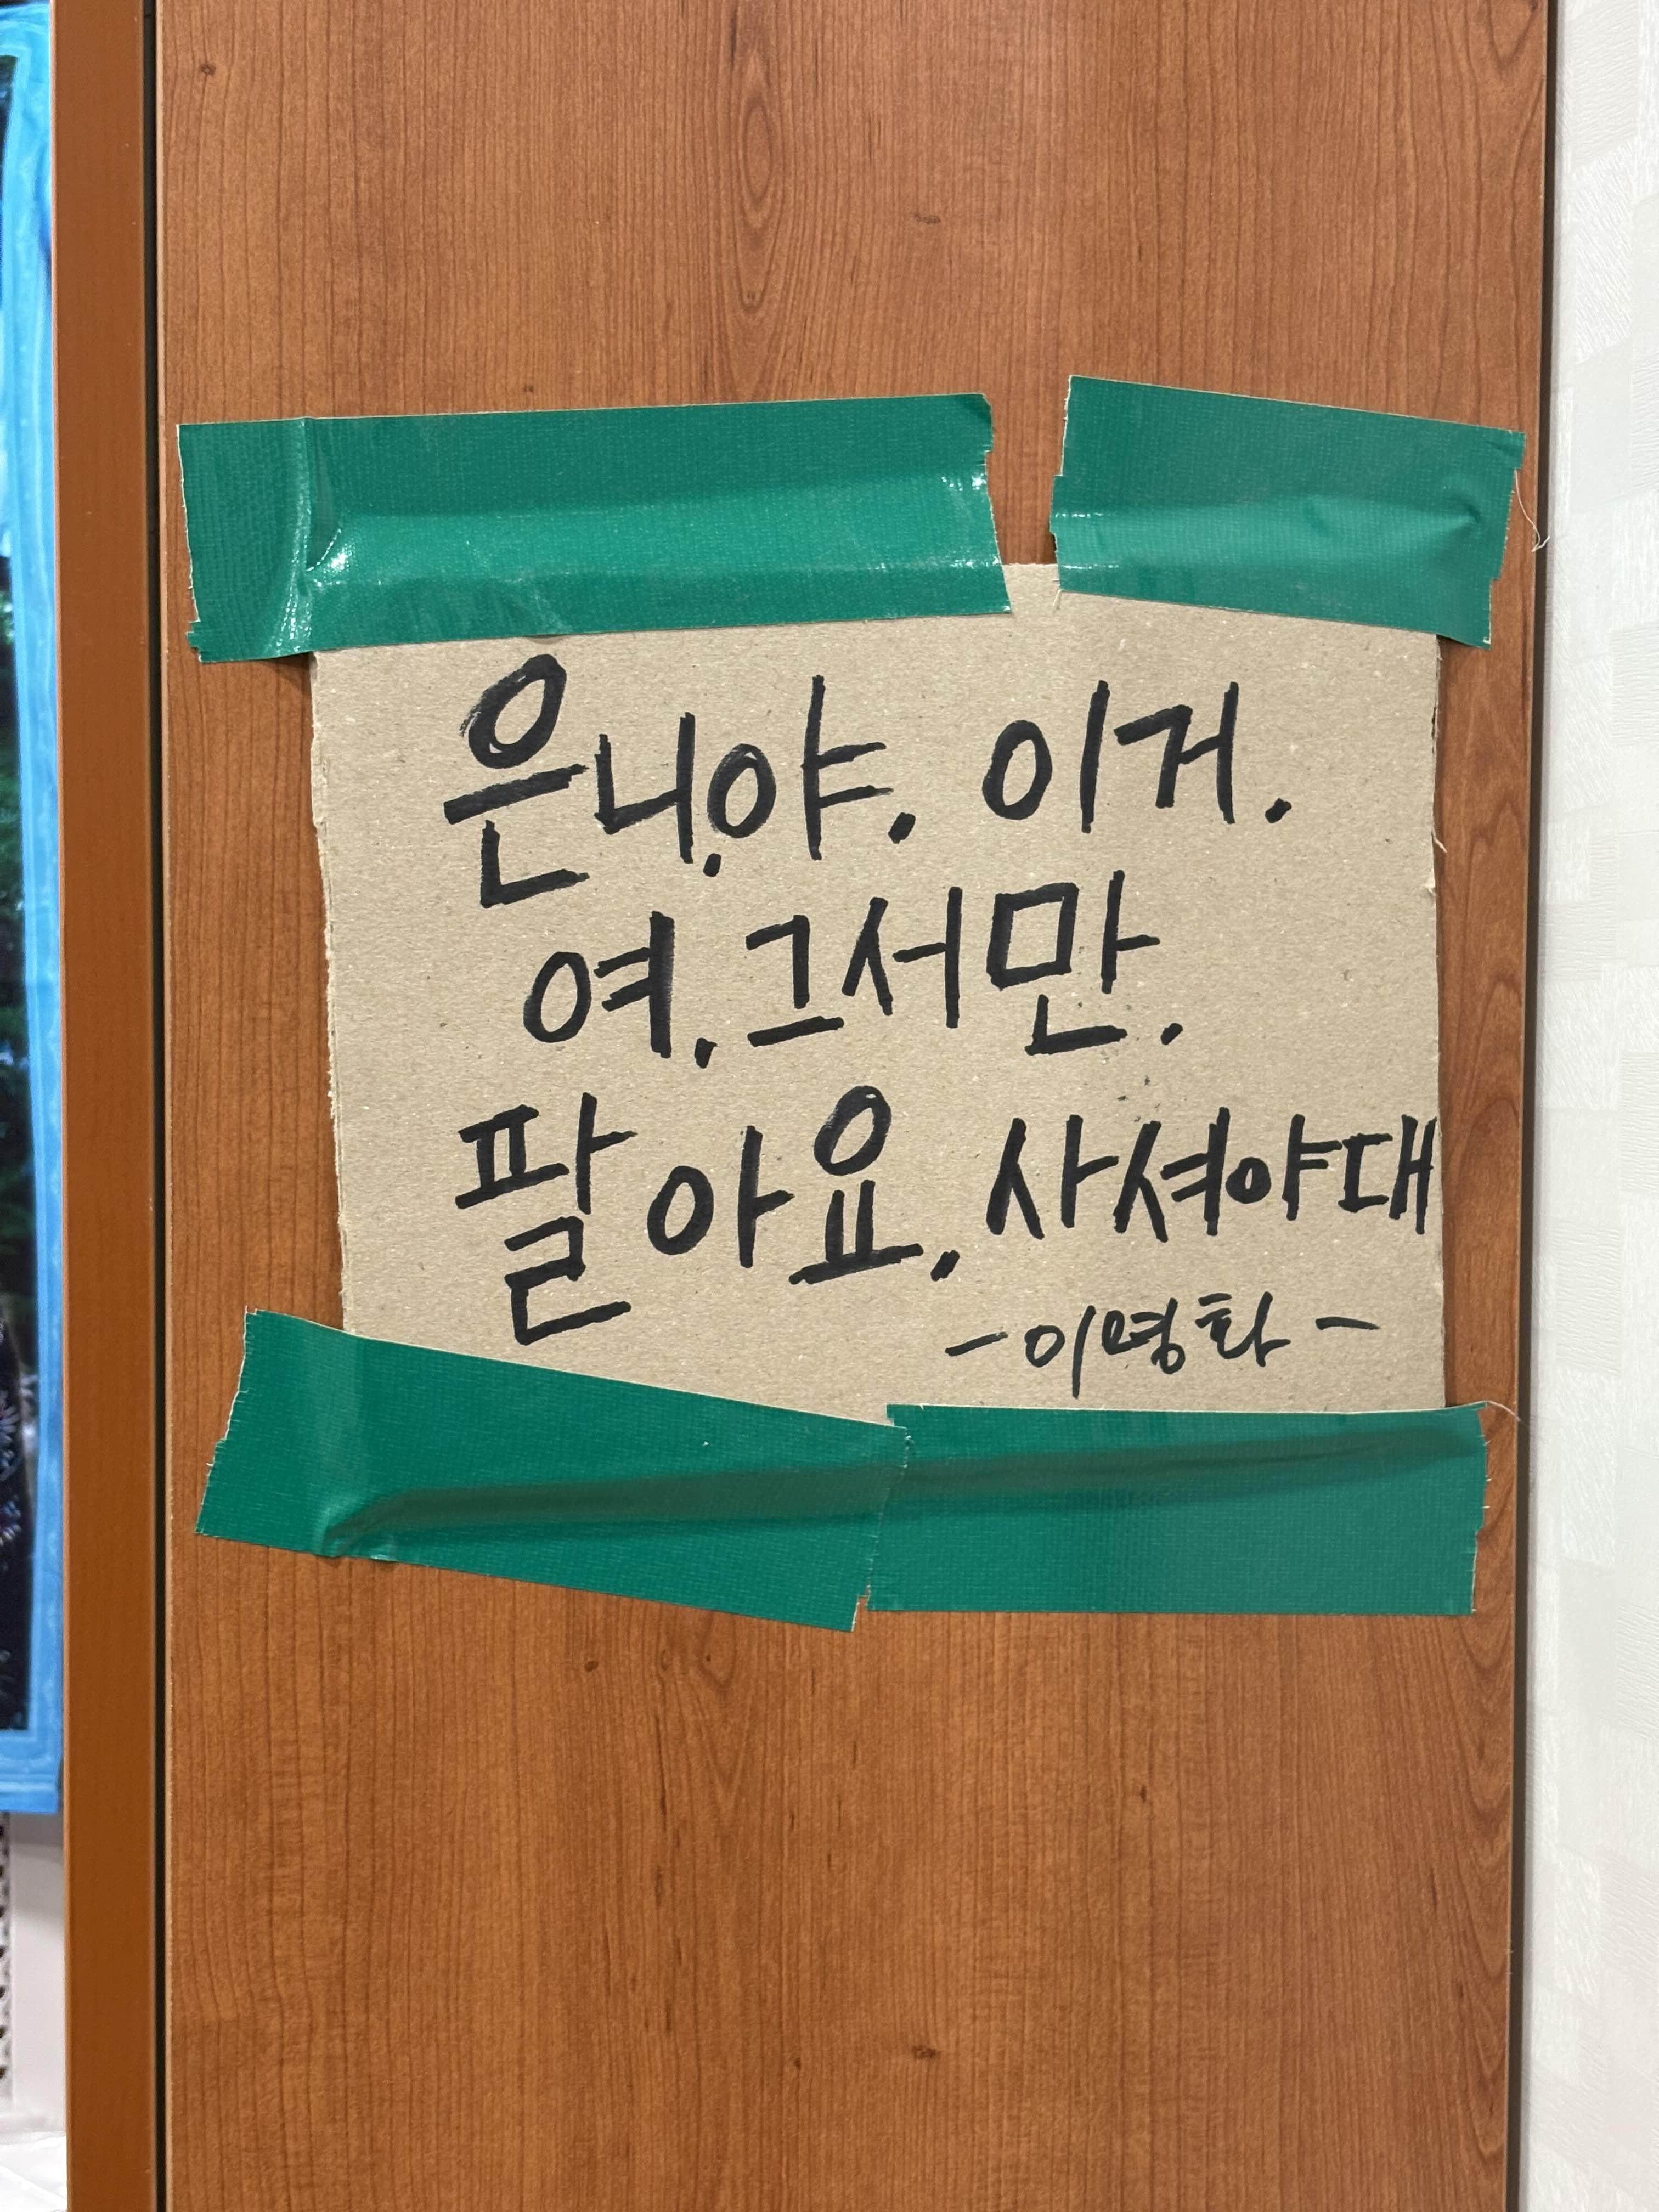 은니.야. 이거.
여.그서만.
팔아요.사셔야대
-이명화-